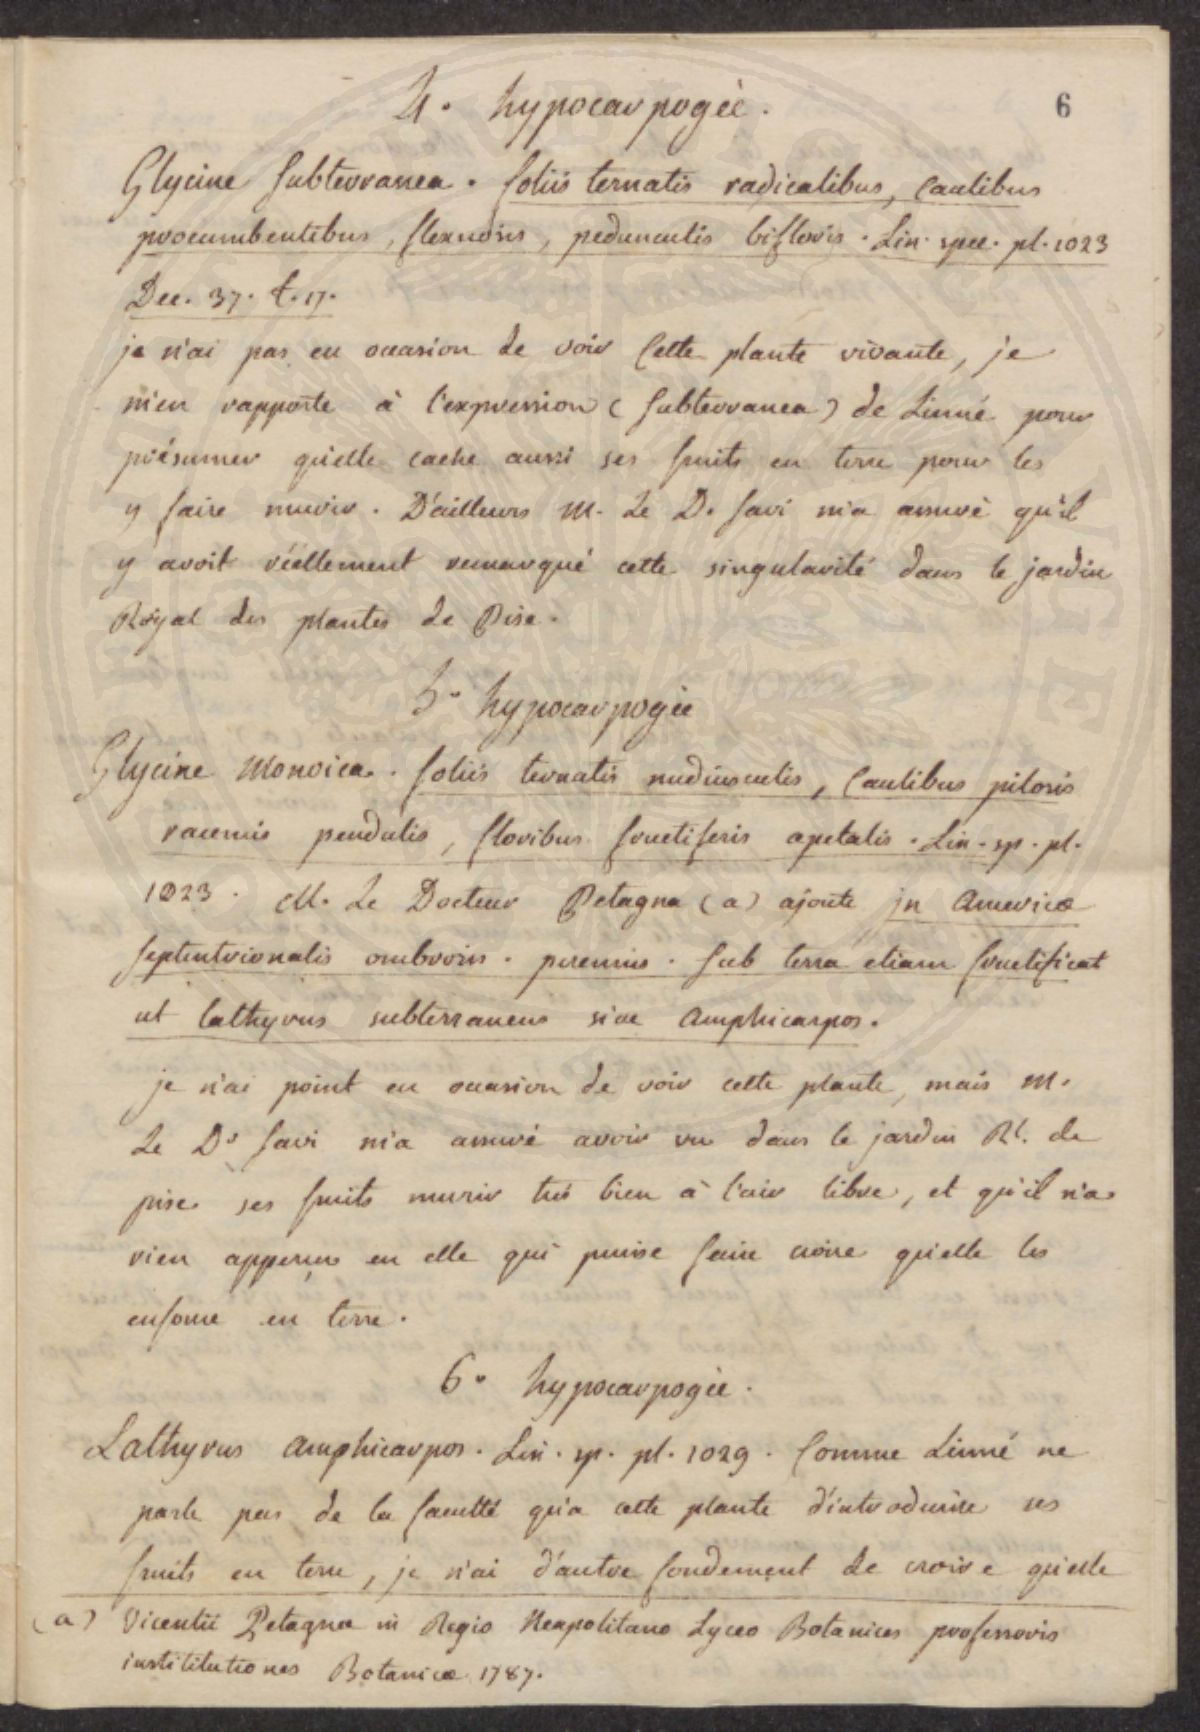 6
4.º hypocarpogée.
Glycine Subterranea. foliis ternatis radicalibus, caulibus
procumbentibus, flexuosis, pedunculis bifloris. Lin. spec. pl. 1023
Dec. 37. t. 17.
je n'ai pas eu occasion de voir cette plante vivante, je
m'en rapporte à l'expression (Subterranea) de Linné pour
présumer qu'elle cache aussi ses fruits en terre pour les
y faire murir. D'ailleurs M. Le D. Savi m'a assuré qu'il
y avoit réellement remarqué cette singularité dans le jardin
Royal des plantes de Pise.
5.º hypocarpogée
Glycine Monoica. foliis ternatis nudiusculis, caulibus pilosis
racemis pendulis, floribus fructiferis apetalis. Lin. sp. pl.
1023. M. Le Docteur Petagna (a) ajoute in Americæ
septentrionalis ombrosis. perennis. Sub terra etiam fructificat
ut lathyrus subterraneus sive Amphicarpos.
je n'ai point eu occasion de voir cette plante, mais M.
Le Dr Savi m'a assuré avoir vu dans le jardin Rl. de
pise ses fruits murir trés bien à l'air libre, et qu'il n'a
rien apperçu en elle qui puisse faire croire qu'elle les
enfouie en terre.
6.º hypocarpogée.
Lathyrus Amphicarpos. Lin. sp. pl. 1029. Comme Linné ne
parle pas de la faculté qu'a cette plante d'introduire ses
fruits en terre, je n'ai d'autre fondement de croire qu'elle
(a) Vicentii Petagnæ in Regio Neapolitano Lyceo Botanices professoris
instititutiones Botanicæ 1787.